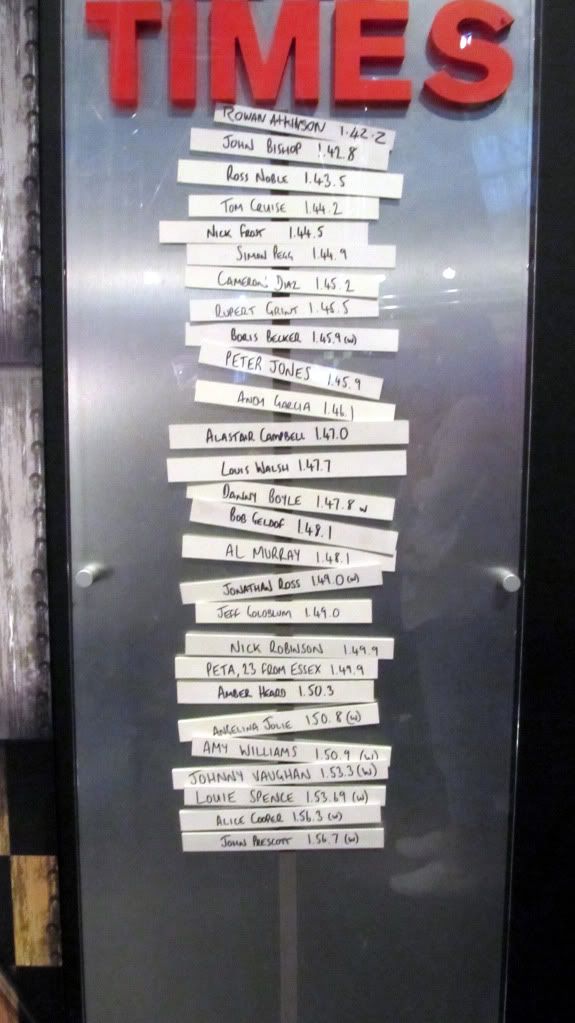 TIMES
ROWAN ATKINSON 1.42.2
JOHN BISHOP 1.42.8
ROSS NOBLE 1.43.5
TOM CRUISE 1.44.2
NICK FROST 1.44.5
SIMON PEGG 1.44.9
CAMERON DIAZ 1.45.2
RUPERT GRINT 1.45.5
BORIS BECKER 1.45.9 (W)
PETER JONES 1.45.9
ANDY GARCIA 1.46.1
ALASTAIR CAMPBELL 1.47.0
LOUIS WALSH 1.47.7
DANNY BOYLE 1.47.8 W
BOB GELDOF 1.48.1
AL MURRAY 1.48.1
JONATHAN ROSS 1.49.0 (W)
JEFF GOLDBLUM 1.49.0
NICK ROBINSON 1.49.9
PETA, 23 FROM ESSEX 1.49.9
AMBER HEARD 1.50.3
ANGELINA JOLIE 1.50.8 (W)
AMY WILLIAMS 1.50.9 (W)
JOHNNY VAUGHAN 1.53.3 (W)
LOUIE SPENCE 1.53.69 (W)
ALICE COOPER 1.56.3 (W)
JOHN PRESCOTT 1.56.7 (W)